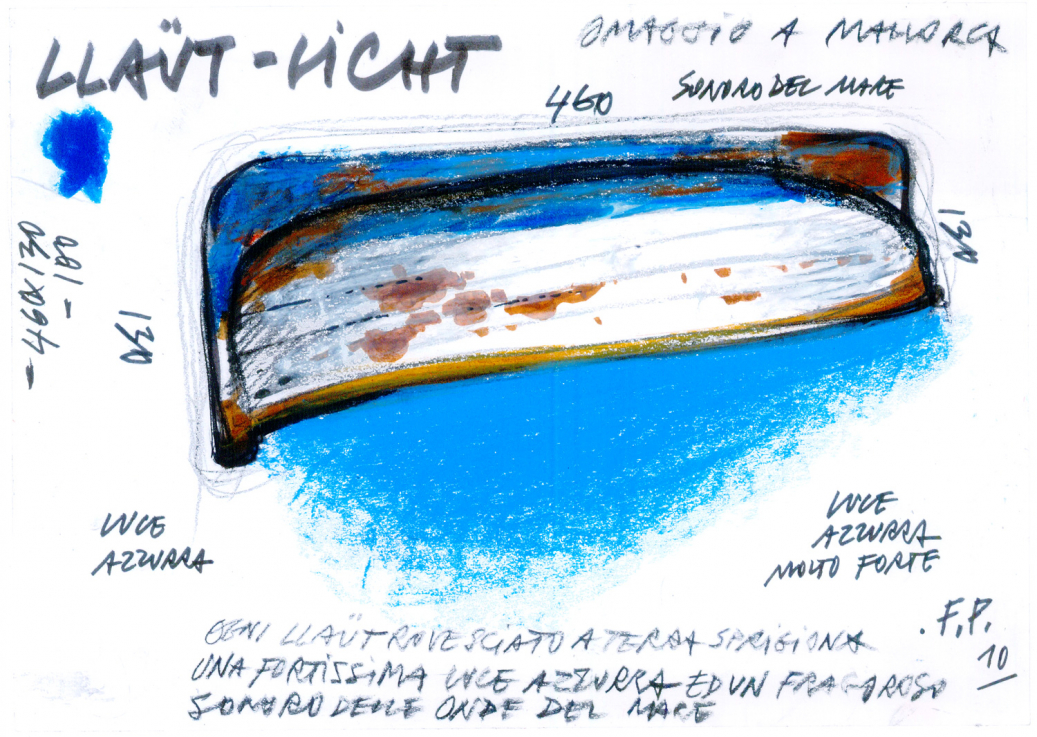 LLAÜT-LICHT
OMAGGIO A MALLORCA
SONORO DEL MARE
460
130
- 460X130
- 180
130
LUCE
AZZURRA
LUCE
AZZURRA
MOLTO FORTE
OGNI LLAÜT ROVESCIATO A TERRA SPRIGIONA
UNA FORTISSIMA LUCE AZZURRA ED UN FRAGOROSO
SONORO DELLE ONDE DEL MARE
. F.P.
10